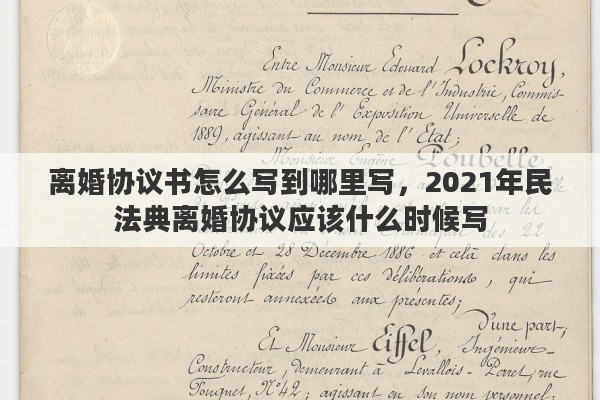 Entre Monsieur Edouard Lockroy,
Ministre du Commerce et de l'Industrie, Commis-
saire Général de l'Exposition Universelle de
1889, agissant au nom de l'Etat;
Monsieur Eugène Poubelle
离婚协议书怎么写到哪里写，2021年民
法典离婚协议应该什么时候写
Octobre et 28 Décembre 1886 et celà dans les
limites fixées par ces délibérations, qui
resteront annexées aux présentes;
D'une part;
Et Monsieur Eiffel, Ingénieur-
Constructeur, demeurant à Levallois-Perret, rue
Fouquet, N° 42; agissant en son nom personnel;